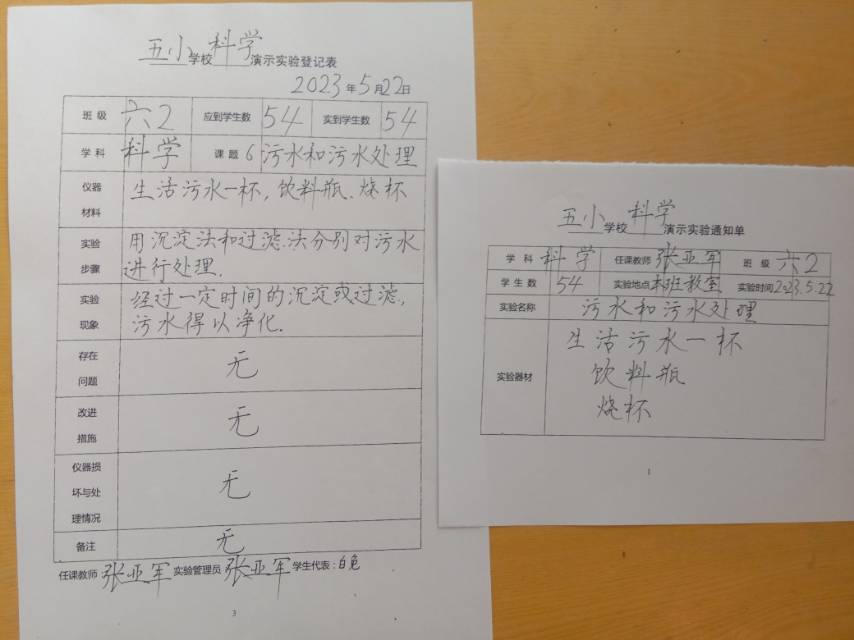 五小学校科学演示实验登记表
2023年5月22日
班级 六2 应到学生数 54 实到学生数 54
学科 科学 课题 6 污水和污水处理
仪器材料 生活污水一杯,饮料瓶.烧杯
实验步骤 用沉淀法和过滤.法分别对污水
进行处理.
实验现象 经过一定时间的沉淀或过滤,
污水得以净化.
存在问题 无
改进措施 无
仪器损坏与处理情况 无
备注 无
任课教师 张亚军 实验管理员 张亚军 学生代表:
3
五小学校科学演示实验通知单
学科 科学 任课教师 张亚军 班级 六2
学生数 54 实验地点 本班教室 实验时间 2023.5.22
实验名称 污水和污水处理
实验器材 生活污水一杯
饮料瓶
烧杯
1